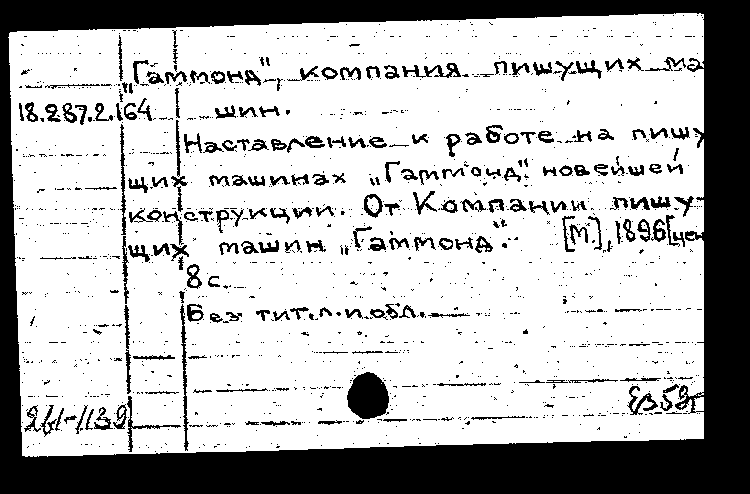 „Гаммонд", компания пишущих ма-
18.287.2.164 шин.
Наставление к работе на пишу
щих машинах „Гаммонд". новейшей
конструкции. От Компании пишу-
щих машин „Гаммонд". [М], 1896 [цен
8 с.
Без тит.л.и обл.